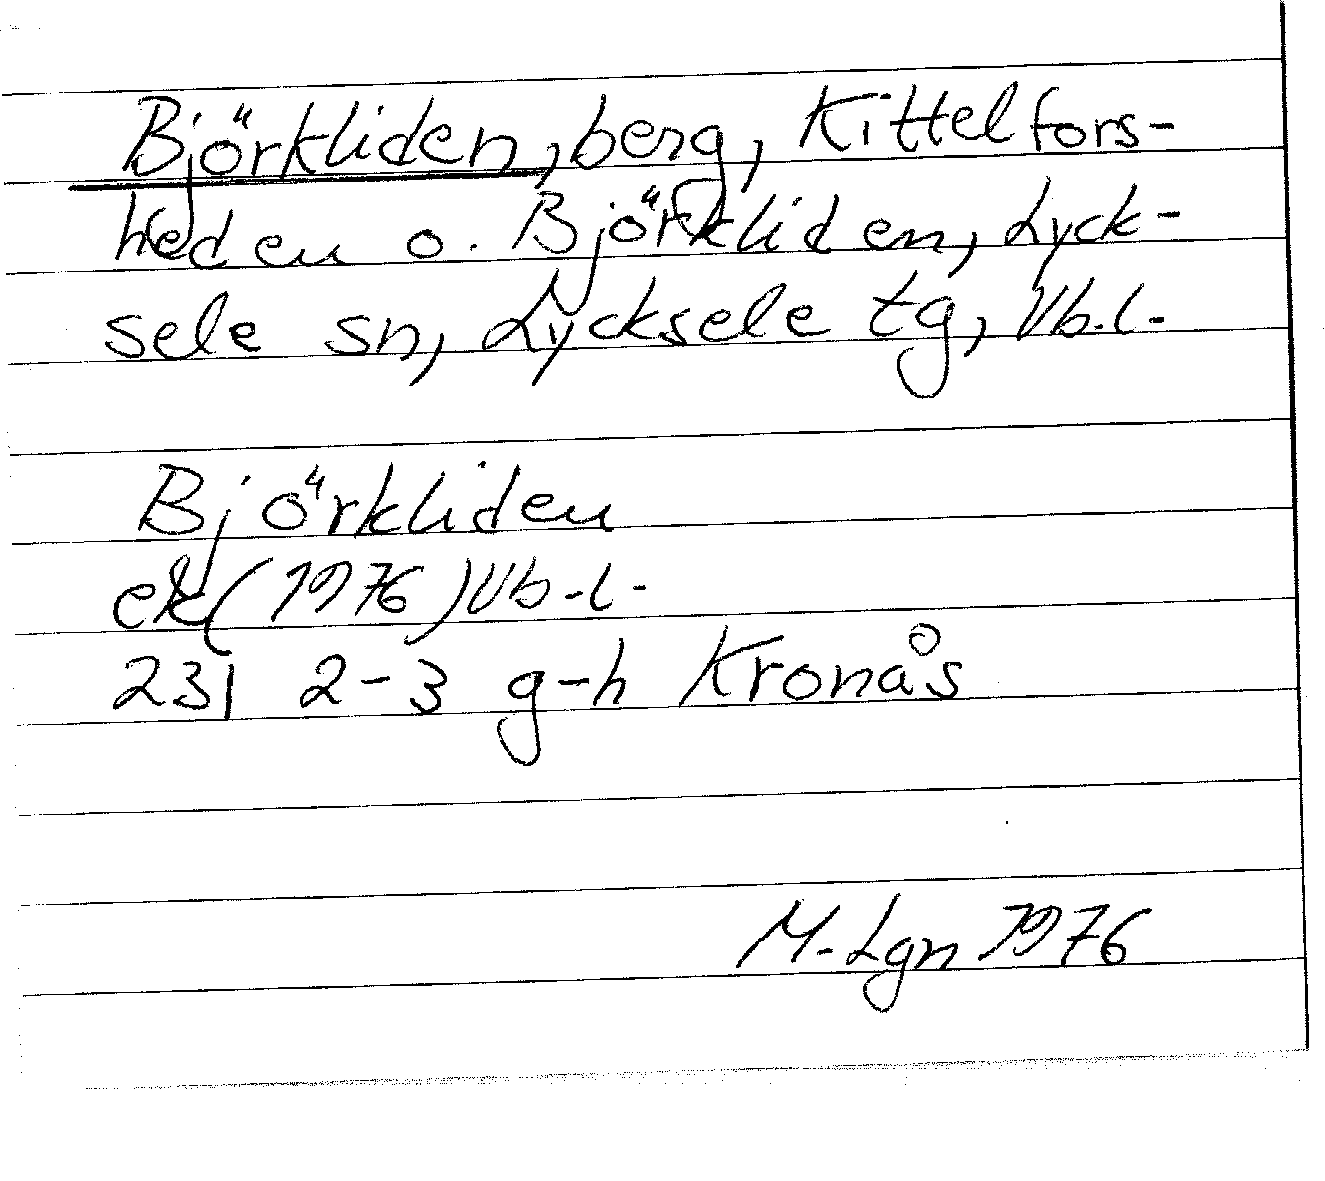 Björkliden, berg, Kittelfors-
heden o. Björkliden, Lyck-
sele sn, Lycksele tg, Vb.l.
Björkliden
ek (1976) Vb.l.
23I 2-3 g-h Kronås
M. Lgn 1976